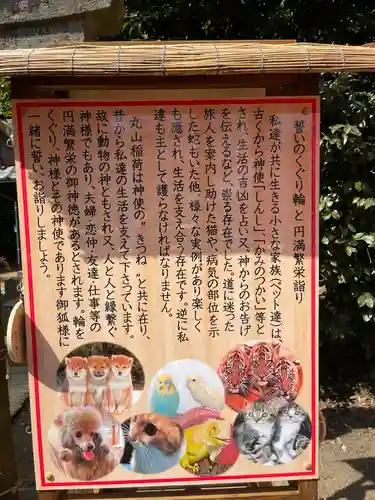 誓いのくぐり輪と円満繁栄詣り
私達が共に生きる小さな家族(ペット達)は、
古くから神使「しんし」、「かみのつかい」等と
され、生活の吉凶を占い、又、神からのお告げ
を伝えるなど、崇る存在でした。道に迷った
旅人を案内し助けた猫や、病気の部位を示
した蛇もいた他、様々な実例があり楽しく
も癒され、生活を支え合う存在です。逆に私
達も主として護らなければなりません。
丸山稲荷は神使の〝きつね〟と共に在り、
昔から私達の生活を支えて下さっています。
故に動物の神ともされ、又、人と縁繋ぐ
神様でもあり、夫婦・恋仲・友達・仕事等の
円満繁栄の御神徳があるとされます。輪を
くぐり、神様とその神使であります御狐様に
一緒に誓い、お詣りしましょう。